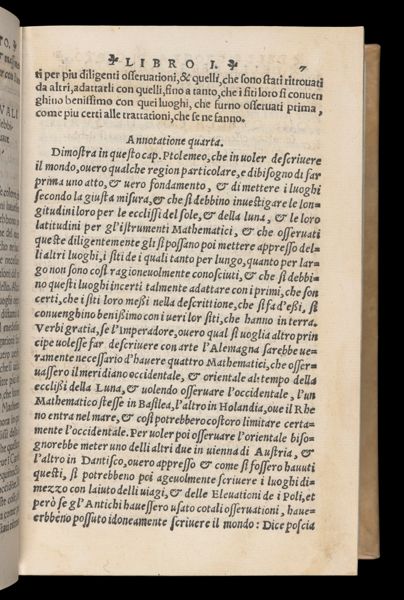 LIBRO I. 7
ti per piu diligenti osseruationi, & quelli, che sono stati ritrouati
da altri, adattarli con quelli, sino a tanto, che i siti loro si conuen
ghino benissimo con quei luoghi, che furno osseruati prima,
come piu certi alle trattationi, che se ne fanno.
Annotatione quarta.
Dimostra in questo cap. Ptolemeo, che in uoler descriuere
il mondo, ouero qualche region particolare, e di bisogno di far
prima uno atto, & uero fondamento, & di mettere i luoghi
secondo la giusta misura, & che si debbino inuestigare le lon-
gitudini loro per le ecclissi del sole, & della luna, & le loro
latitudini per gl'istrumenti Mathematici, & che osseruati
queste diligentemente gli si possano poi mettere appresso del-
li altri luoghi, i siti de i quali tanto per lungo, quanto per lar-
go non sono cosi ragioneuolmente conosciuti, & che si debbi-
no questi luoghi incerti talmente adattare con i primi, che son
certi, che i siti loro messi nella descrittione, che si fa d'essi, si
conuenghino benissimo con i ueri lor siti, che hanno in terra.
Verbi gratia, se l'Imperadore, ouero qual si uoglia altro prin
cipe uolesse far descriuere con arte l'Alemagna sarebbe ue-
ramente necessario d'hauere quattro Mathematici, che osser-
uassero il meridiano occidentale, & orientale al tempo della
ecclissi della Luna, & uolendo osseruare l'occidentale, l'un
Mathematico stesse in Basilea, l'altro in Holandia, oue il Rhe
no entra nel mare, & cosi potrebbero costoro limitare certa-
mente l'occidentale. Per uoler poi osseruare l'orientale biso-
gnorebbe meter uno delli altri due in uienna di Austria, &
l'altro in Dantisco, ouero appresso & come si fossero hauuti
questi, si potrebbeno poi ageuolmente scriuere i luoghi di
mezzo con l'aiuto delli uiagi, & delle Eleuationi de i Poli, et
però se gl'Antichi hauessero usato cotali osseruationi, haue-
erbbeno possuto idoneamente scriuere il mondo: Dice poscia